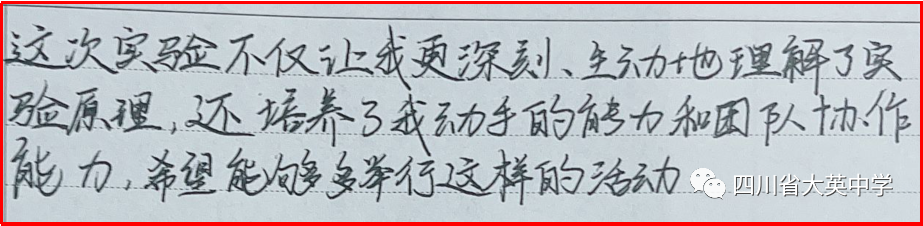 这次实验不仅让我更深刻、主动地理解了实
验原理,还培养了我动手的能力和团队协作
能力,希望能够多举行这样的活动
四川省大英中学